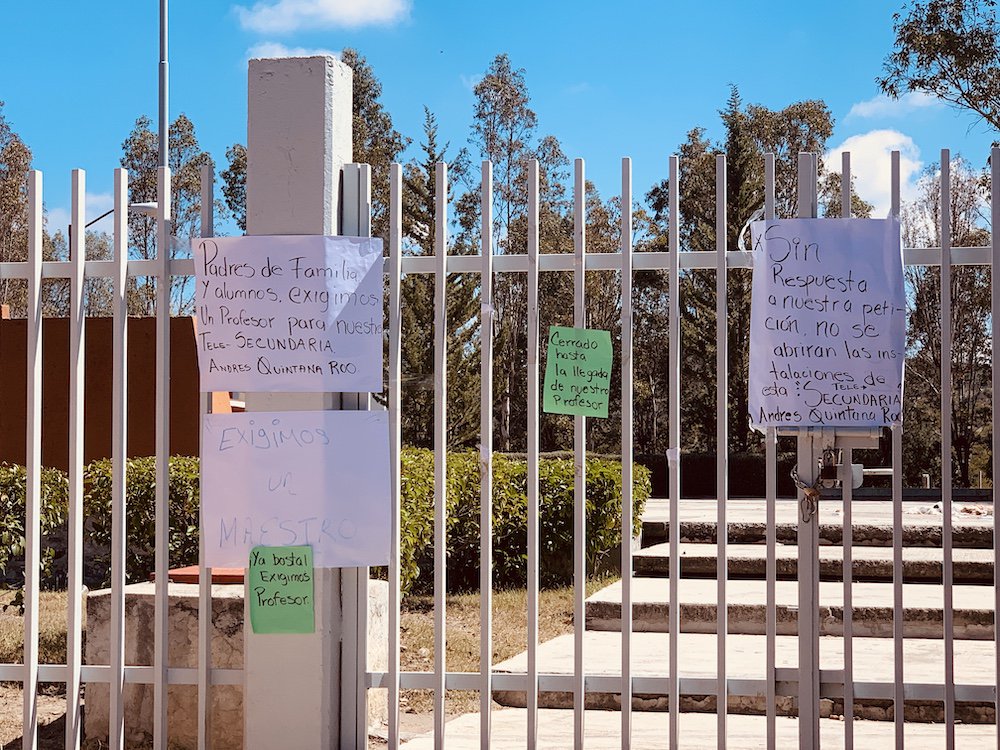 Padres de Familia
Y alumnos, exigimos
Un Profesor para nuestra
TELE-SECUNDARIA.
ANDRES QUINTANA ROO
EXIGIMOS
UN
MAESTRO
Ya basta!
Exigimos
Profesor.
Cerrado
hasta
la llegada
de nuestro
Profesor
x Sin
Respuesta
a nuestra peti-
ción, no se
abriran las ins-
talaciones de
esta "TELE
SECUNDARIA
Andres Quintana Roo